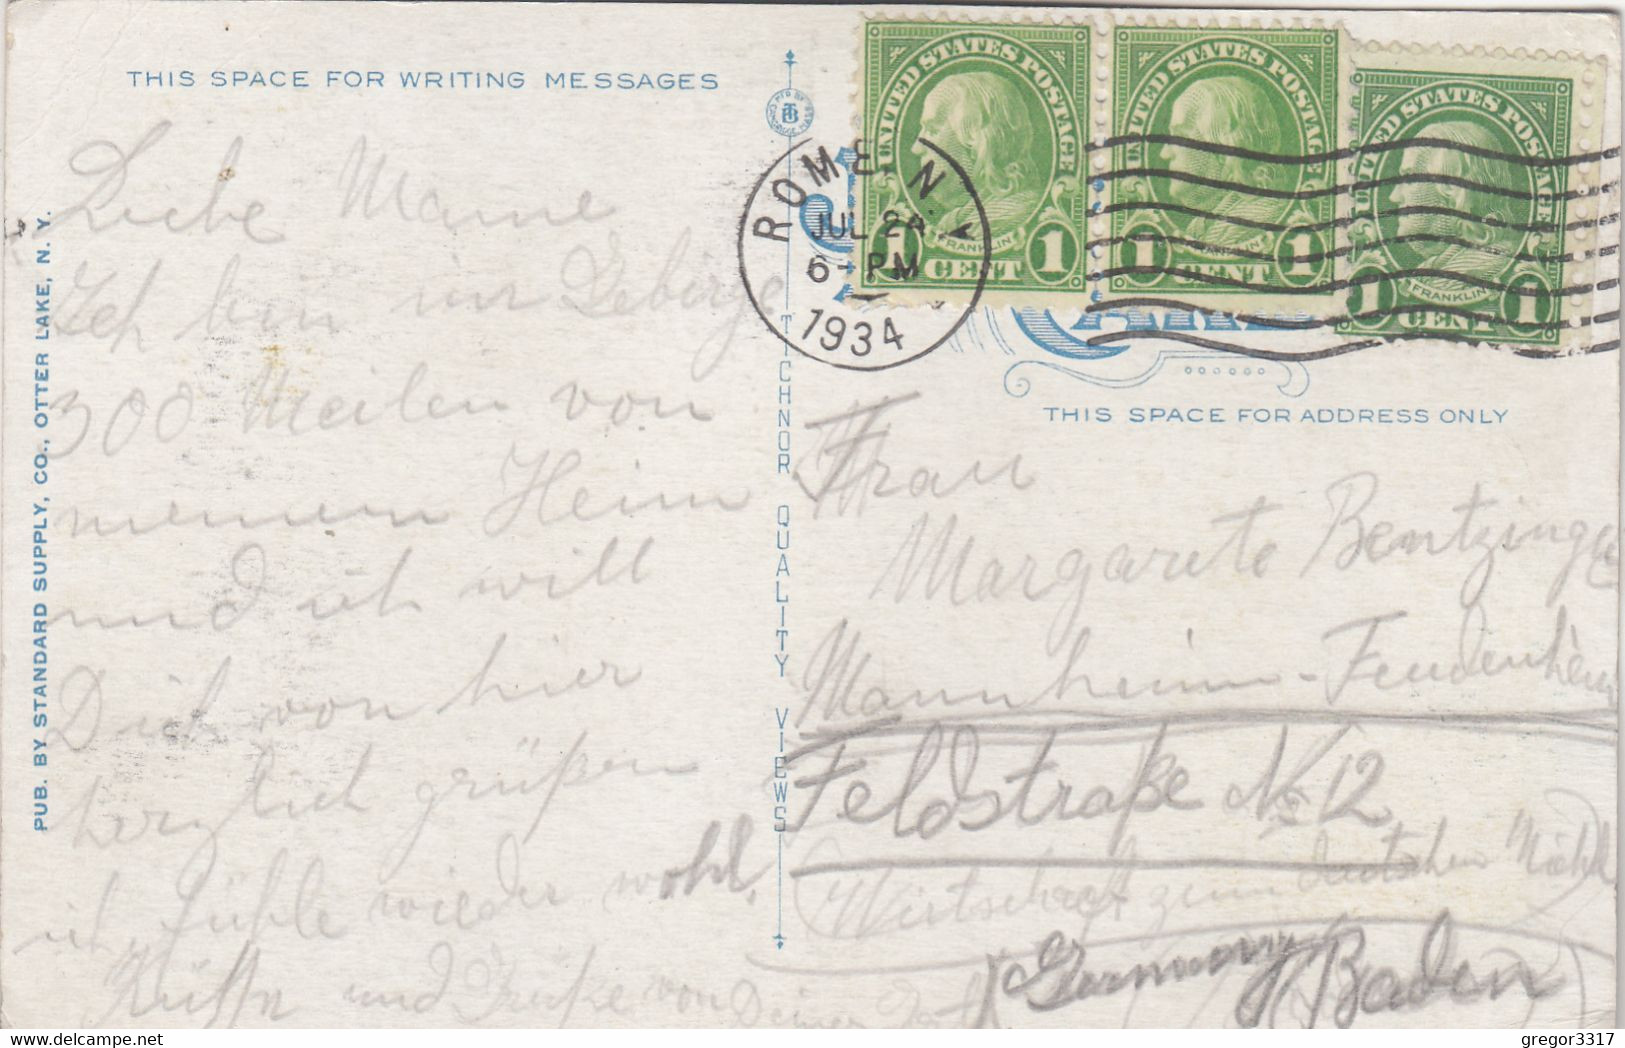 THIS SPACE FOR WRITING MESSAGES
Liebe Mame
Ich bin im Gebirge
300 Meilen von
meinem Heim
und ich will
Dich von hier
herzlich grüßen
ich fühle wieder wohl.
und Grüße von Deiner
PUB. BY STANDARD SUPPLY, CO., OTTER LAKE, N. Y.
MFD BY
TB
CAMBRIDGE, MASS
TICHNOR QUALITY VIEWS
ROME, N.
JUL 24
6- PM
1934
UNITED STATES POSTAGE
FRANKLIN
1 CENT 1
UNITED STATES POSTAGE
FRANKLIN
1 CENT 1
UNITED STATES POSTAGE
FRANKLIN
1 CENT 1
THIS SPACE FOR ADDRESS ONLY
Frau
Margarete Bentzinger
Mannheim-Feudenheim
Feldstraße No 12
Wirtschaft zum deutschen
Germany Baden
gregor3317